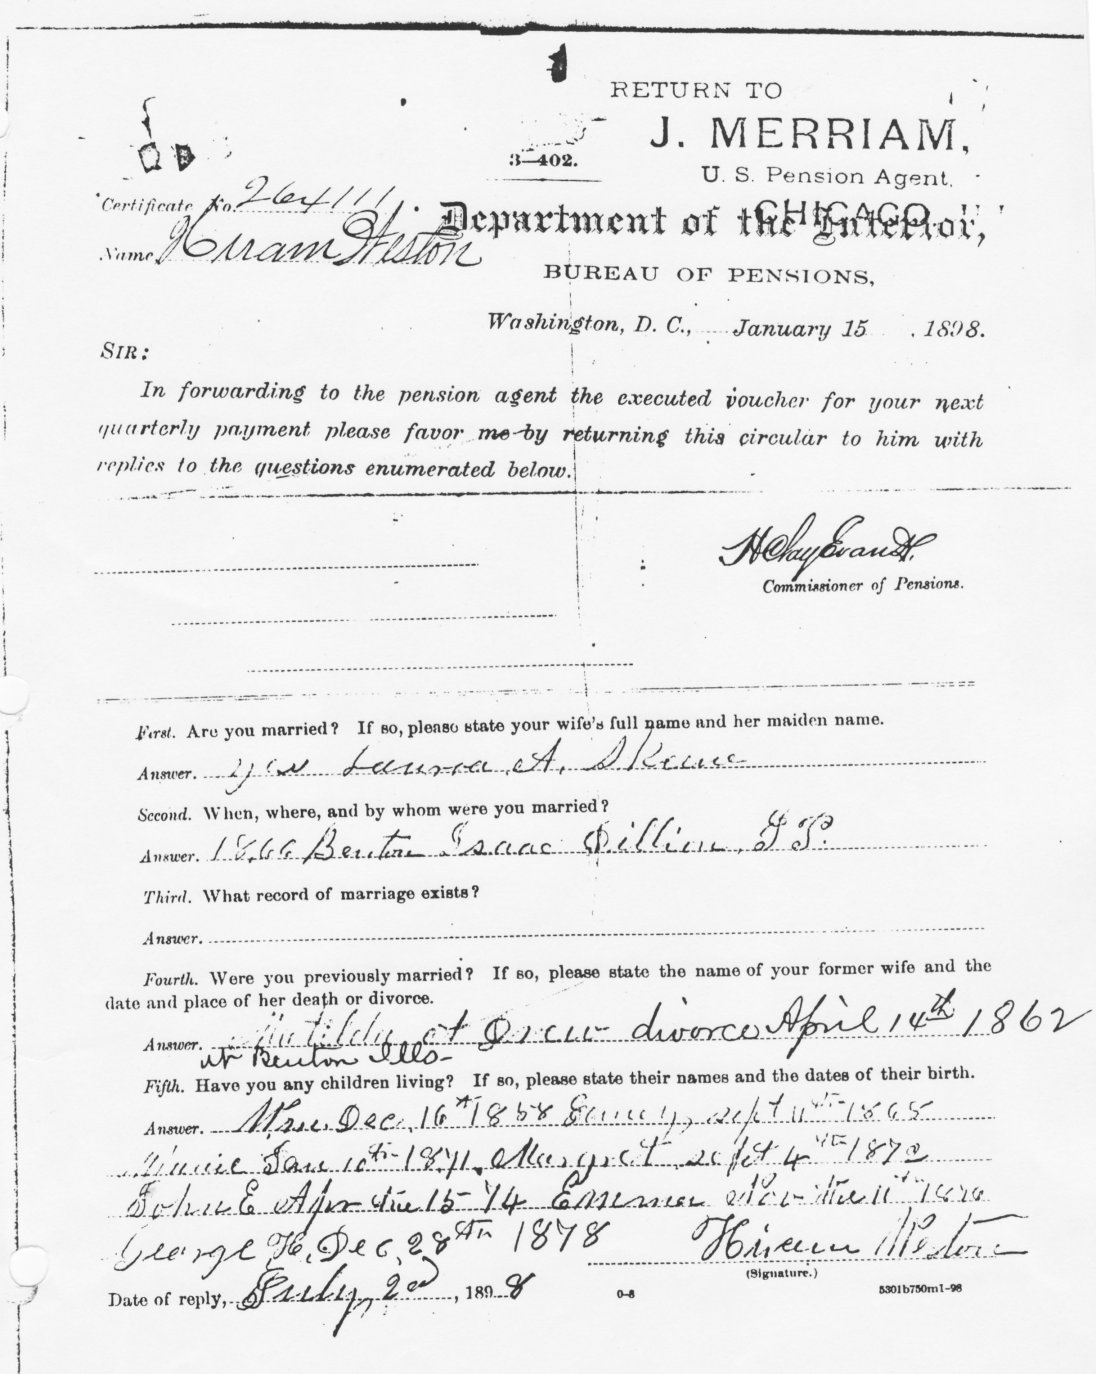 RETURN TO
J. MERRIAM,
3—402.
U. S. Pension Agent,
CHICAGO
Certificate No. 264111
Department of the Interior,
Name, Hiram Weston
BUREAU OF PENSIONS,
Washington, D. C., January 15, 1898.
SIR:
In forwarding to the pension agent the executed voucher for your next
quarterly payment please favor me by returning this circular to him with
replies to the questions enumerated below.
H Clay Evans.
Commissioner of Pensions.
First. Are you married? If so, please state your wife's full name and her maiden name.
Answer. yes A.
Second. When, where, and by whom were you married?
Answer. 1866 Benton Isaac Dillion J P.
Third. What record of marriage exists?
Answer.
Fourth. Were you previously married? If so, please state the name of your former wife and the
date and place of her death or divorce.
Answer. Matilda divorce April 14th 1862
at Benton Ills-
Fifth. Have you any children living? If so, please state their names and the dates of their birth.
Answer. Wm. Dec. 16th 1858 sept 11th 1865
Minnie Jan 10th 1871. Margret sept 4th 1872
John E Apr the 15 74 Nov the 11th 1876
George H. Dec 28th 1878 Hiram Weston
(Signature.)
Date of reply, July, 2nd, 1898
0-8
5301b750m1-98